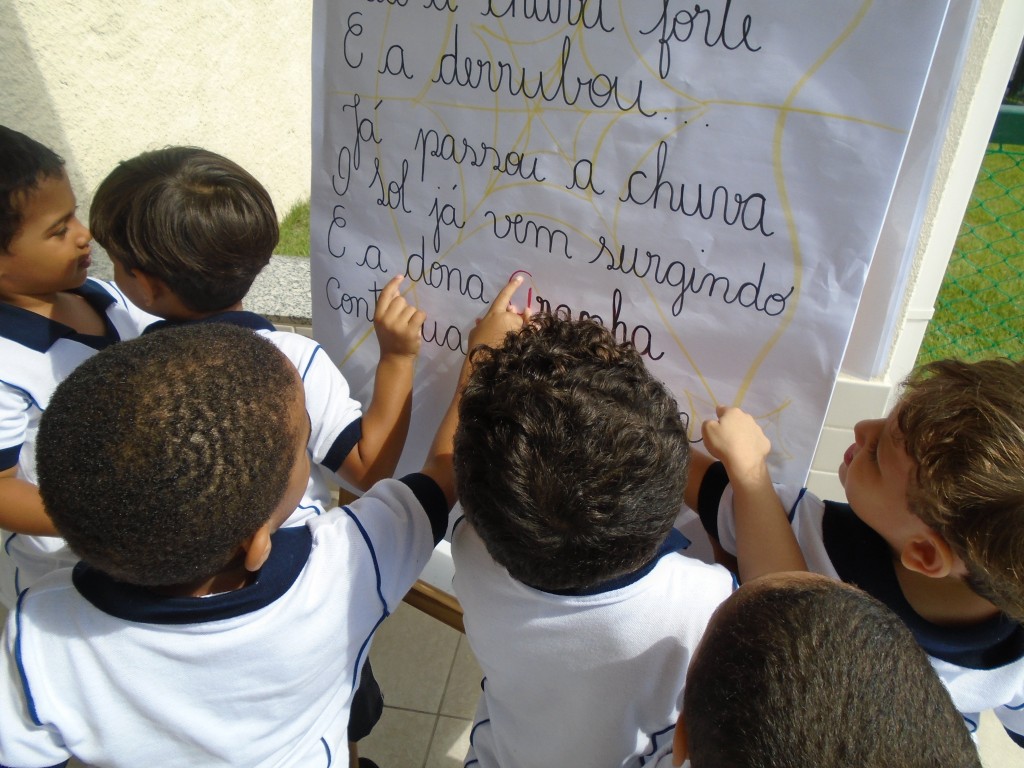 a chuva forte
E a derrubou...
Já passou a chuva
O sol já vem surgindo
E a dona Aranha